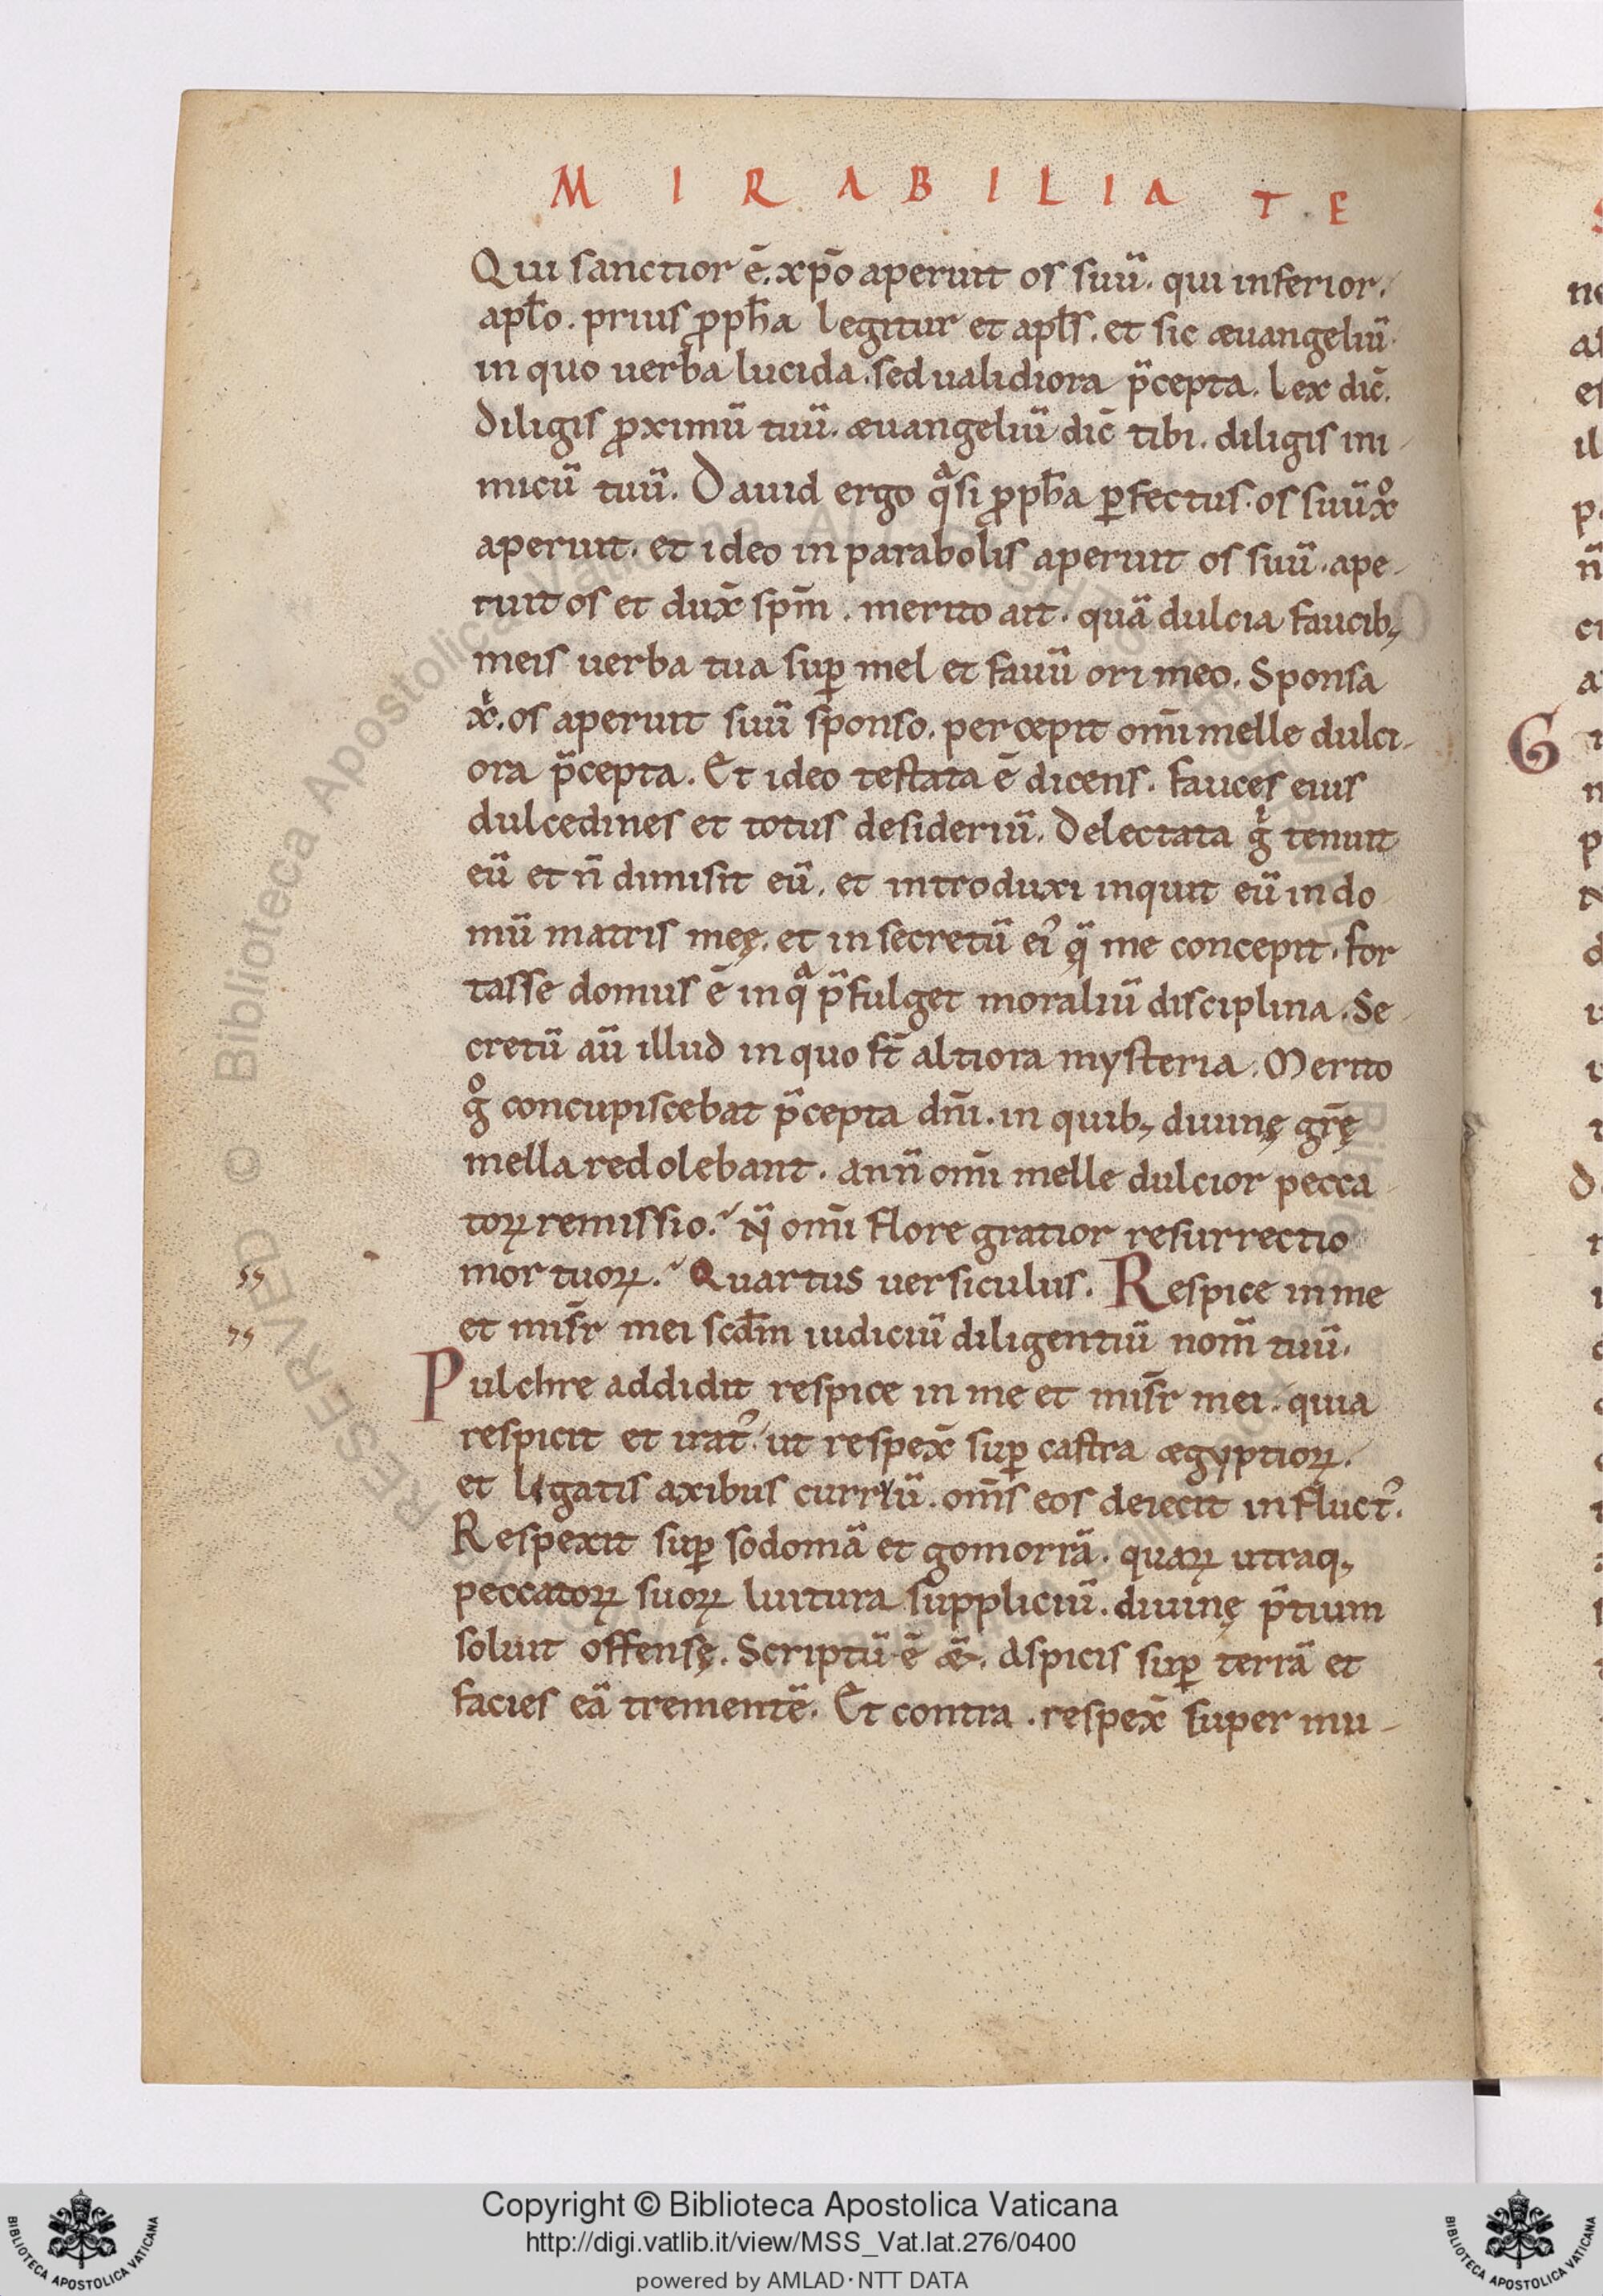 M I R A B I L I A T E
Qui sanctior ē. xp̄o aperuit os suū. qui inferior.
apl̄o. prius ꝓph̄a legitur et apl̄s. et sic æuangeliū.
in quo uerba lucida. sed ualidiora p̄cepta. Lex dic̄.
diligis ꝓximū tuū. æuangeliū dic̄ tibi. diligis ini-
micū tuū. Dauid ergo qͣsi ꝓph̄a ꝑfectus. os suū xͦ
aperuit. et ideo in parabolis aperuit os suū. ape-
ruit os et dux̄ sp̄m. merito ait. quā dulcia faucib;
meis uerba tua suꝑ mel et fauū ori meo. Sponsa
xͥ. os aperuit suū sponso. percepit om̄i melle dulci-
ora p̄cepta. Et ideo testata ē dicens. fauces eius
dulcedines et totus desideriū. Delectata gͥ tenuit
eū et n̄ dimisit eū. et introduxi inquit eū in do-
mū matris meę. et in secretū ei᾽ q̄ me concepit. for
tasse domus ē in qͣ p̄fulget moraliū disciplina. Se-
cretū aū illud in quo st̄ altiora mysteria. Merito
gͦ concupiscebat p̄cepta dn̄i. in quib; diuinę gr̄ę
mella redolebant. an n̄ om̄i melle dulcior pecca-
toꝝ remissio. N̄ om̄i flore gratior resurrectio
mortuoꝝ. Quartus uersiculus. Respice in me
et mis̄r mei scd̄m iudiciū diligentiū nom̄ tuū.
Pulchre addidit respice in me et mis̄r mei. quia
respicit et irat᾽. ut respex̄ suꝑ castra ægyptioꝝ.
et ligatis axibus curruū. om̄s eos deiecit in fluct᾽.
Respexit suꝑ sodomā et gomorrā. quaꝝ utraq;
peccatoꝝ suoꝝ luitura suppliciū. diuinę p̄tium
soluit offensę. Scriptū ē &. aspicis suꝑ terrā et
facies eā trementē. Et contra. respex̄ super mu-
Copyright © Biblioteca Apostolica Vaticana
http://digi.vatlib.it/view/MSS_Vat.lat.276/0400
powered by AMLAD·NTT DATA
BIBLIOTECA APOSTOLICA VATICANA
BIBLIOTECA APOSTOLICA VATICANA